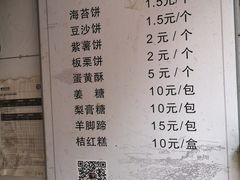 海苔饼 1.5元/个
豆沙饼 1.5元/个
紫薯饼 2元/个
板栗饼 2元/个
蛋黄酥 5元/个
姜糖 10元/包
梨膏糖 10元/包
羊脚蹄 15元/包
桔红糕 10元/盒